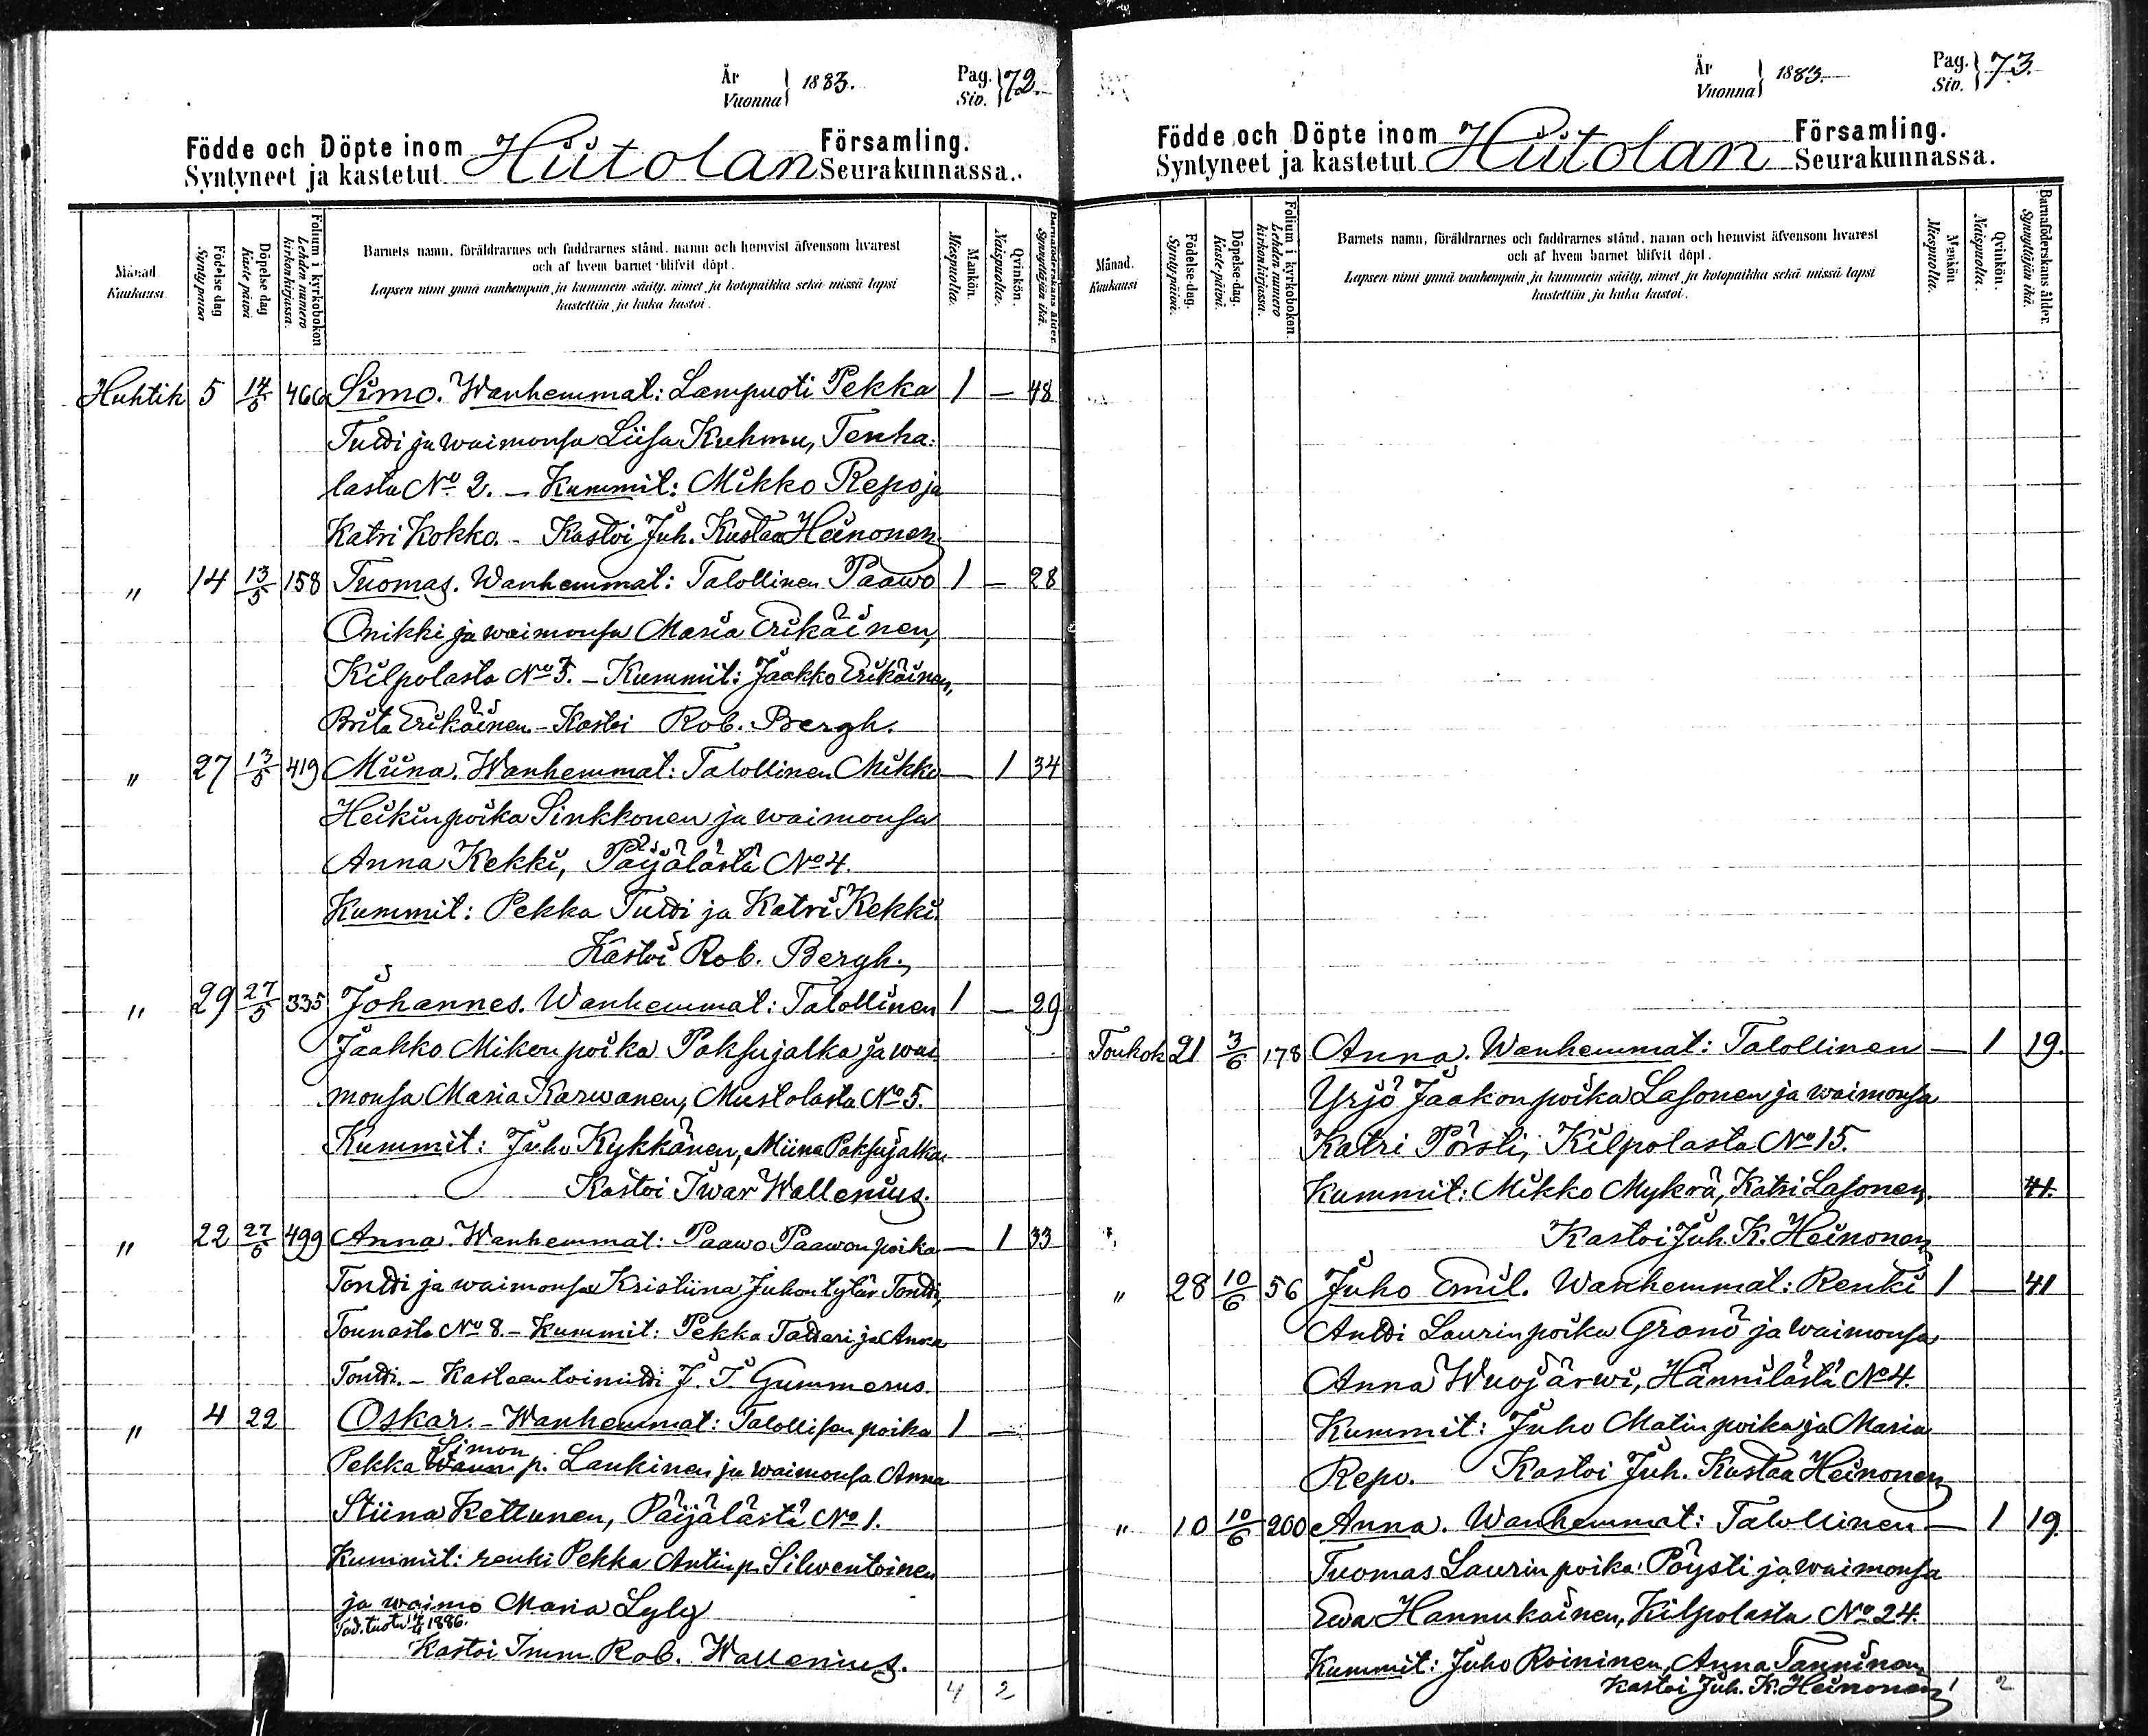 År
Vuonna } 1883.
Pag.
Siv. } 72.
Födde och Döpte inom Hiitolan Församling.
Syntyneet ja kastetut Seurakunnassa.
Månad.
Kuukausi.
Födelse dag
Syntypäivä
Döpelse dag
Kaste päivä
Folium i kyrkobokon
Lehden numero
kirkonkirjassa.
Barnets namn, föräldrarnes och faddrarnes stånd, namn och hemvist äfvensom hvarest
och af hvem barnet blifvit döpt.
Lapsen nimi ynnä vanhempain ja kummein sääty, nimet ja kotopaikka sekä missä lapsi
kastettiin ja kuka kastoi.
Mankön.
Miespuolia.
Qvinkön.
Naispuolia.
Barnaföderskans ålder.
Synnyttäjän ikä.
Huhtik 5 14/5 466 Simo. Wanhemmat: Lampuoti Pekka 1 — 48
Tutti ja waimonsa Liisa Kuhmu, Tenha-
lasta No 2. – Kummit: Mikko Repo ja
Katri Kokko. – Kastoi Juh. Kustaa Heinonen
" 14 13/5 158 Tuomas. Wanhemmat: Talollinen Paawo 1 — 28
Onikki ja waimonsa Maria Erikäinen,
Kilpolasta No 5. – Kummit: Jaakko Erikäinen,
Brita Erikäinen. – Kastoi Rob. Bergh.
" 27 13/5 419 Miina. Wanhemmat: Talollinen Mikko — 1 34
Heikinpoika Sinkkonen ja waimonsa
Anna Kekki, Päijälästä No 4.
Kummit: Pekka Tutti ja Katri Kekki.
Kastoi Rob. Bergh.
" 29 27/5 335 Johannes. Wanhemmat: Talollinen 1 — 29
Jaakko Mikonpoika Paksujalka ja wai
monsa Maria Karwanen, Mustolasta No 5.
Kummit: Juho Kykkänen, Miina Paksujalka
Kastoi Iwar Wallenius.
" 22 27/5 499 Anna. Wanhemmat: Paawo Paawonpoika — 1 33
Tontti ja waimonsa Kristiina Juhontytär Tontti,
Tounasta No 8. – Kummit: Pekka Tattari ja Anna
Tontti. – Kasteen toimitti J. I. Gummerus.
" 4 22 Oskar. – Wanhemmat: Talollisen poika 1 —
Simon
Pekka p. Laukinen ja waimonsa Anna
Stiina Kettunen, Päijälästä No 1.
Kummit: renki Pekka Antinp. Silwentoinen
ja waimo Maria Lyly
1886.
Kastoi Imm. Rob. Wallenius.
4 2
År
Vuonna } 1883.
Pag.
Siv. } 73.
Födde och Döpte inom Hiitolan Församling.
Syntyneet ja kastetut Seurakunnassa.
Månad.
Kuukausi
Födelse-dag.
Syntypäivä.
Döpelse-dag.
Kaste-päivä.
Folium i kyrkobokon.
Lehden numero
kirkonkirjassa.
Barnets namn, föräldrarnes och faddrarnes stånd, namn och hemvist äfvensom hvarest
och af hvem barnet blifvit döpt.
Lapsen nimi ynnä vanhempain ja kummein sääty, nimet ja kotopaikka sekä missä lapsi
kastettiin ja kuka kastoi.
Mankön
Miespuolia.
Qvinkön.
Naispuolia.
Barnaföderskans ålder.
Synnyttäjän ikä.
Toukok 21 3/6 178 Anna. Wanhemmat: Talollinen — 1 19.
Yrjö Jaakonpoika Lasonen ja waimonsa
Katri Pörsti, Kilpolasta No 15.
Kummit: Mikko Mykrä, Katri Lasonen. 41.
Kastoi Juh. K. Heinonen
" 28 10/6 56 Juho Emil. Wanhemmat: Renki 1 — 41
Antti Laurinpoika Granö ja waimonsa
Anna Wuojärwi, Hännilästä No 4.
Kummit: Juho Matinpoika ja Maria
Repo. Kastoi Juh. Kustaa Heinonen
" 10 10/6 200 Anna. Wanhemmat: Talollinen — 1 19
Tuomas Laurinpoika Pöysti ja waimonsa
Ewa Hannukainen, Kilpolasta No 24.
Kummit: Juho Roininen, Anna Tanninen
Kastoi Juh. K. Heinonen
1 2